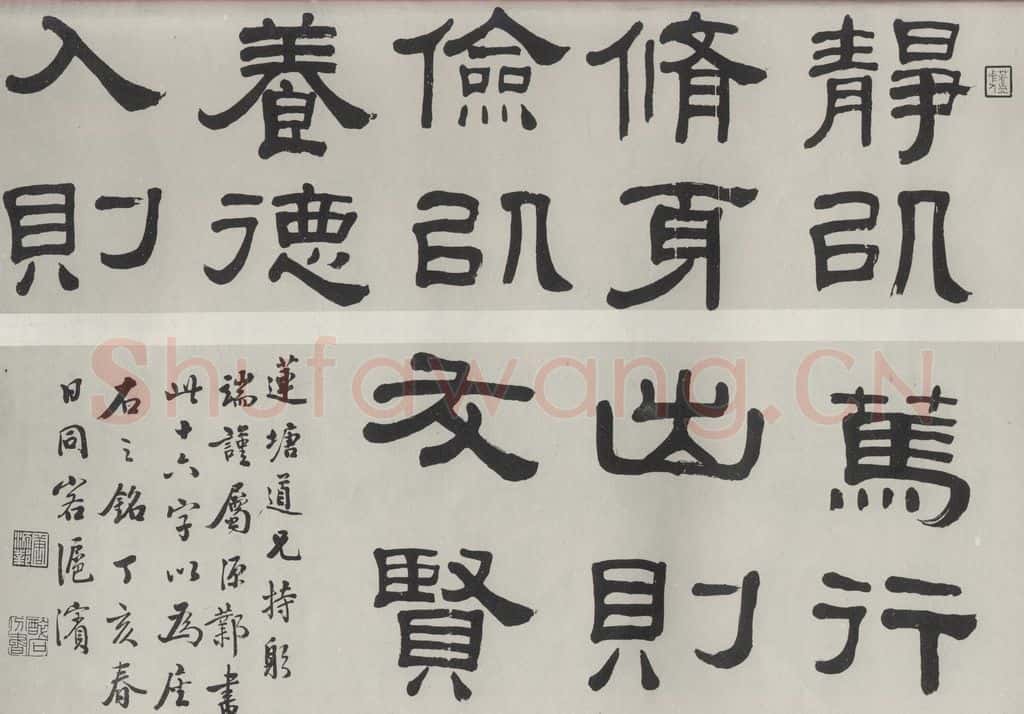 靜以
脩身
儉以
養德
入則
篤行
出則
友賢
蓮塘道兄持躬
端謹屬源鄴書
此十六字以為座
右之銘丁亥春
日同客滬濱
Shufawang.CN